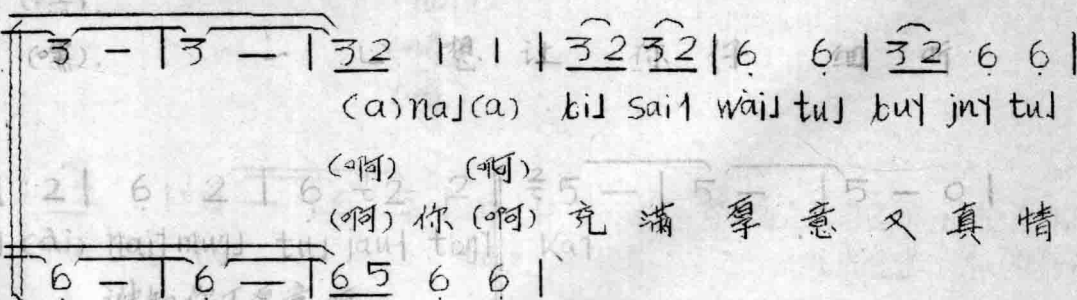 3 — | 3 — | 32 1 1 | 32 32 | 6̣ 6̣ | 32 6̣ 6̣ |
(a) na˩ (a) ti˩ sai˦ wài˩ tu˩ tuy˥ jny˥ tu˩
(啊) (啊)
(啊) 你 (啊) 充 满 厚 意 又 真 情
6̣ — | 6̣ — | 6̣5̣ 6̣ 6̣ |